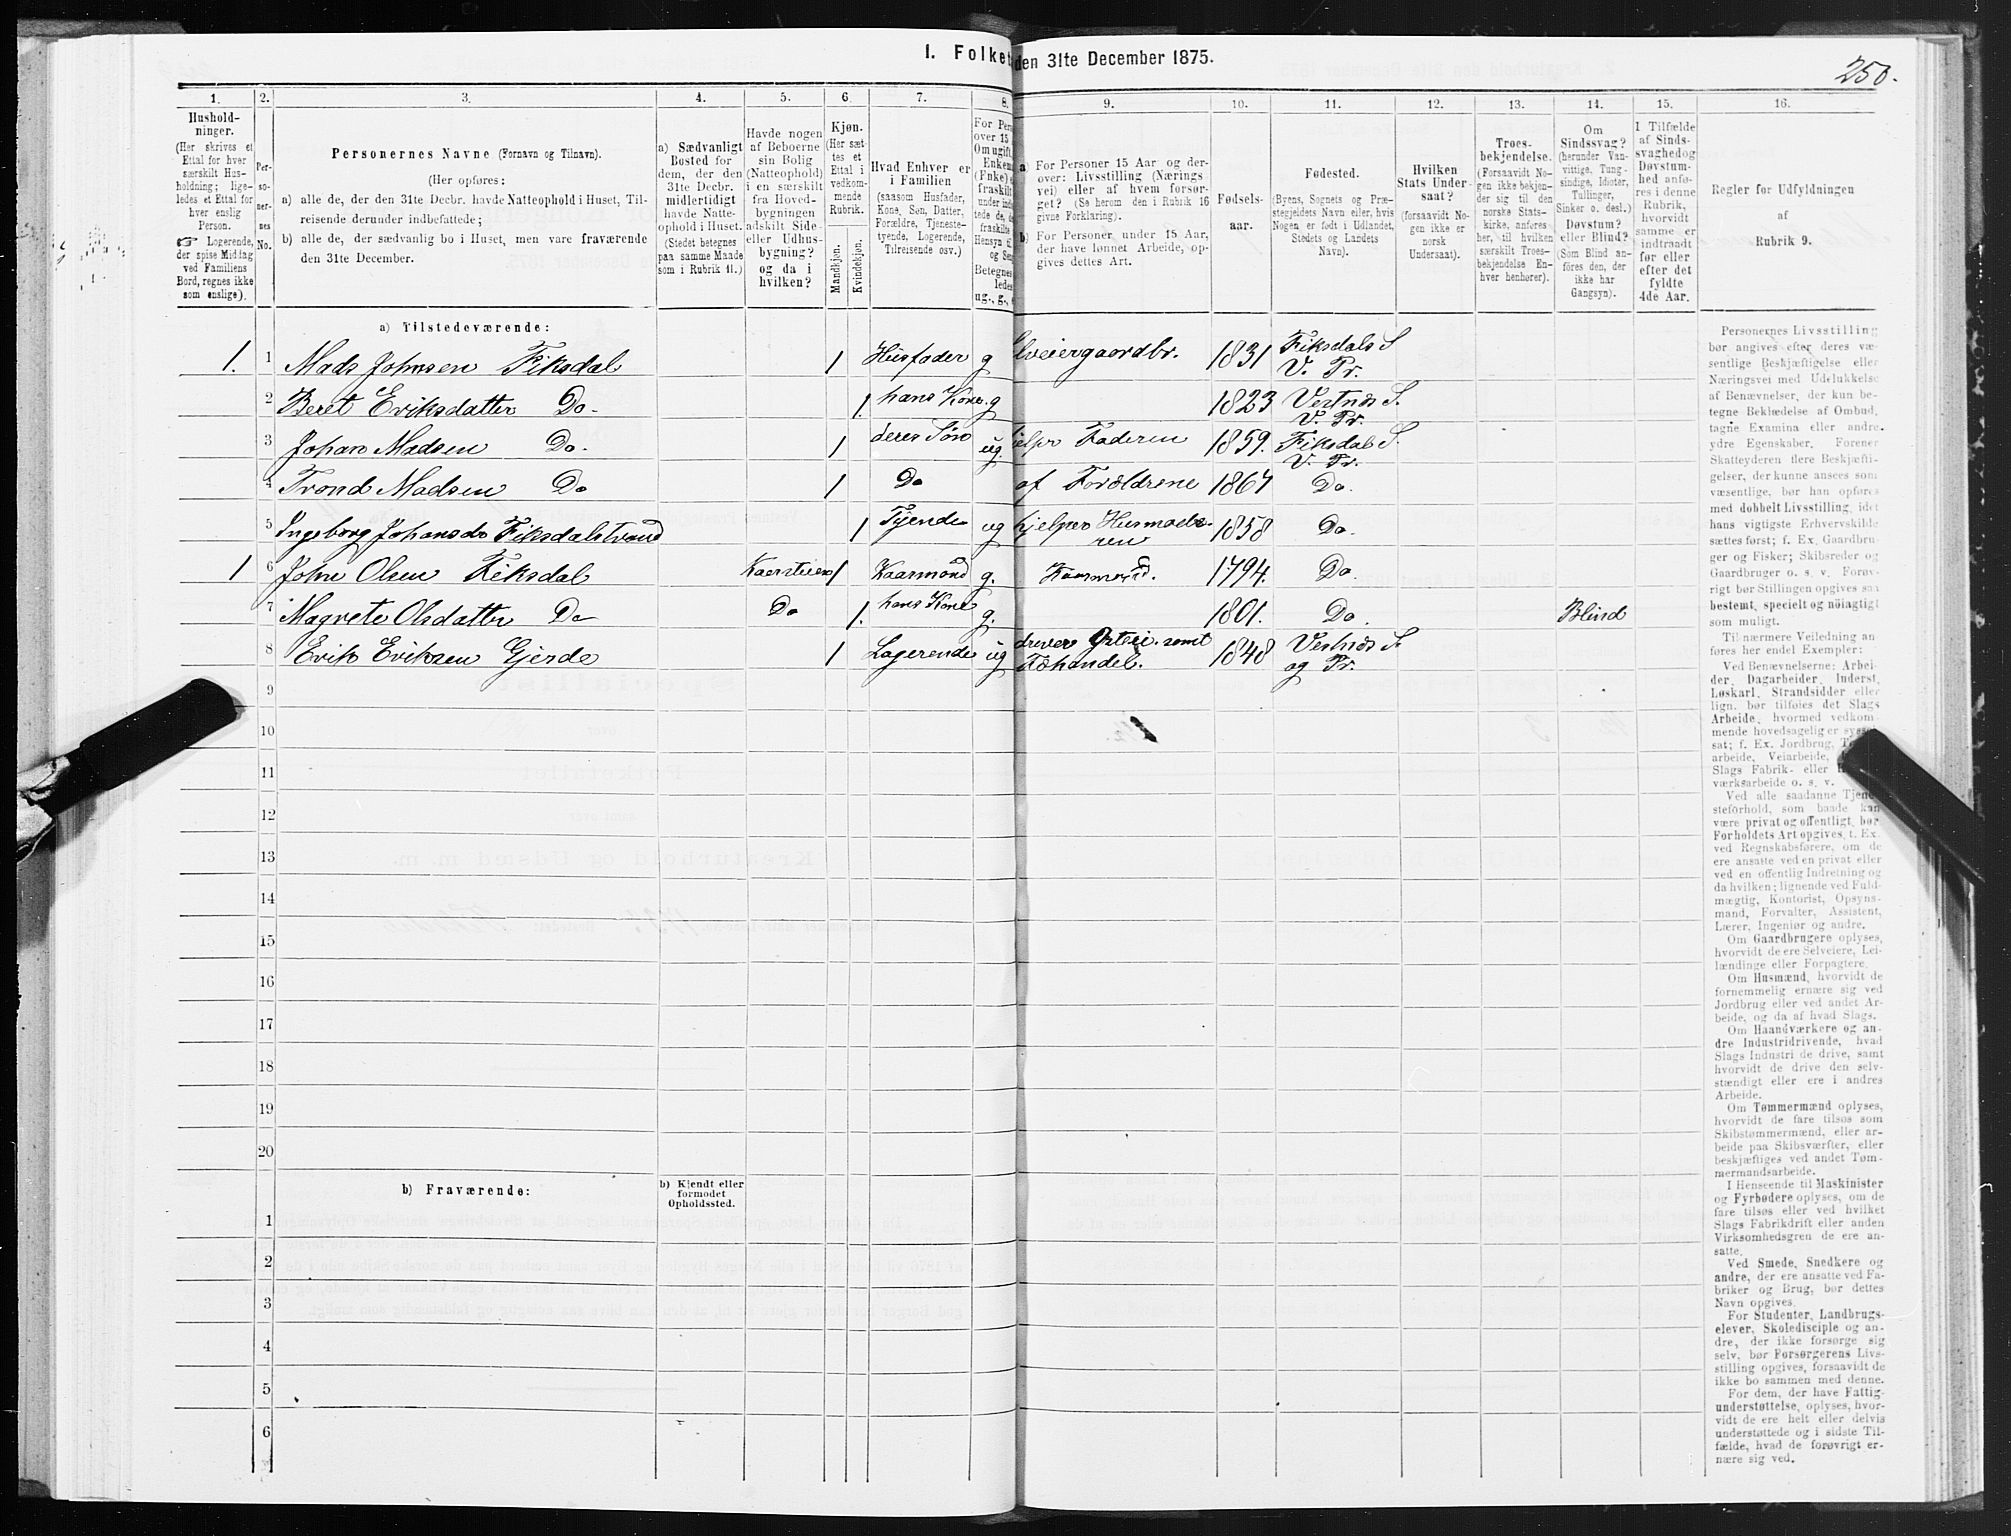 I. Folket
den 31te December 1875.
250.
1.
2.
3.
4.
5.
6.
7.
8.
9.
10.
11.
12.
13.
14.
15.
16.
Hushold-
ninger.
(Her skrives et
Ettal for hver
særskilt Hus-
holdning; lige-
ledes et Ettal for
hver enslig
Person.
☞ Logerende,
der spise Middag
ved Familiens
Bord, regnes ikke
som enslige).
Per-
so-
ner-
nes
No.
Personernes Navne (Fornavn og Tilnavn).
(Her opføres:
a) alle de, der den 31te Decbr. havde Natteophold i Huset, Til-
reisende derunder indbefattede;
b) alle de, der sædvanlig bo i Huset, men vare fraværende
den 31te December.
a) Sædvanligt
Bosted for
dem, der den
31te Decbr.
midlertidigt
havde Natte-
ophold i Huset.
(Stedet betegnes
paa samme Maade
som i Rubrik 11.)
Havde nogen
af Beboerne
sin Bolig
(Natteophold)
i en særskilt
fra Hoved-
bygningen
adskilt Side-
eller Udhus-
bygning?
og da i
hvilken?
Kjøn.
(Her sæt-
tes et
Ettal i
vedkom-
mende
Rubrik.
Mandkjøn.
Kvindekjøn.
Hvad Enhver er
i Familien
(saasom Husfader,
Kone, Søn, Datter,
Forældre, Tjeneste-
tyende, Logerende,
Tilreisende osv.)
For Pers
over 15
Om ugift,
Enkem
(Enke)
fraskilt
under ind
tede de, d
fraskilte
Hensyn ti
og Sen
Betegnes
ledes
ug., g., e
a) For Personer 15 Aar og der-
over: Livsstilling (Nærings-
vei) eller af hvem forsør-
get? (Se herom den i Rubrik 16
givne Forklaring).
b) For Personer under 15 Aar,
der have lønnet Arbeide, op-
gives dettes Art.
Fødsels-
aar.
Fødested.
(Byens, Sognets og Præ-
stegjeldets Navn eller, hvis
Nogen er født i Udlandet,
Stedets og Landets
Navn).
Hvilken
Stats Under-
saat?
(forsaavidt No-
gen ikke er
norsk
Undersaat).
Troes-
bekjendelse.
(Forsaavidt No-
gen ikke bekjen-
der sig til den
norske Stats-
kirke, anføres
her, til hvilken
særskilt Troes-
bekjendelse En-
hver henhører).
Om
Sindssvag?
(herunder Van-
vittige, Tung-
sindige, Idioter,
Tullinger,
Sinker o. desl.)
Døvstum?
eller Blind?
(Som Blind an-
føres den, der
ikke har
Gangsyn).
I Tilfælde
af Sinds-
svaghed og
Døvstum-
hed anfø-
res i denne
Rubrik,
hvorvidt
samme er
indtraadt
før eller
efter det
fyldte
4de Aar.
Regler for Udfyldningen
af
Rubrik 9.
a) Tilstedeværende:
1. 1 Mads Johnsen Fiksdal 1 Husfader g lveiergaardbr. 1831 Fiksdals S
V. Pr.
2 Beret Eriksdatter Do. 1. hans Kone. g 1823 Vestnes S.
V. Pr.
3 Johan Madsen Do. 1 deres Søn ug. jelpr Faderen 1859. Fiksdals S.
V. Pr.
4 Trond Madsen Do 1 Do af Forældrene 1867 Do.
5 Ingeborg Johansdr Fiksdalstrand 1 Tjende ug hjelper Husmode-
ren 1858 Do.
1 6 John Olsen Fiksdal 1 Kaarmand g. Kaarmand. 1794. Do.
7 Magrete Olsdatter Do Do 1. hans Kone g. 1801. Do. Blind
8 Erik Eriksen Gjerde 1 Logerende ug driver samt
Fæhandel. 1848 Vestnes S.
og Pr.
9
10
11
12
13
14
15
16
17
18
19
20
b) Fraværende:
b) Kjendt eller
formodet
Opholdssted.
1
2
3
4
5
6
Personernes Livsstilling
bør angives efter deres væ-
sentlige Beskjæftigelse eller
Næringsvei med Udelukkelse
af Benævnelser, der kun be-
tegne Beklædelse af Ombud,
tagne Examina eller andre
ydre Egenskaber. Forener
Skatteyderen flere Beskjæfti-
gelser, der kunne ansees som
væsentlige, bør han opføres
med dobbelt Livsstilling, idet
hans vigtigste Erhvervskilde
sættes først; f. Ex. Gaardbru-
ger og Fisker; Skibsreder og
Gaardbruger o. s. v. Forøv-
rigt bør Stillingen opgives saa
bestemt, specielt og nöiagtigt
som muligt.
Til nærmere Veiledning an-
føres her endel Exempler:
Ved Benævnelserne: Arbei-
der, Dagarbeider, Inderst,
Løskarl, Strandsidder eller
lign. bør tilføies det Slags
Arbeide, hvormed vedkom-
mende hovedsagelig er syssel-
sat; f. Ex. Jordbrug,
arbeide, Veiarbeide,
Slags Fabrik- eller
værksarbeide o. s. v.
Ved alle saadanne Tjene-
steforhold, som baade kan
være privat og offentligt, bør
Forholdets Art opgives, t. Ex.
ved Regnskabsførere, om de
ere ansatte ved en privat eller
ved en offentlig Indretning og
da hvilken; lignende ved Fuld-
mægtig, Kontorist, Opsyns-
mand, Forvalter, Assistent,
Lærer, Ingeniør og andre.
Om Gaardbrugere oplyses,
hvorvidt de ere Selveiere, Lei-
lændinge eller Forpagtere.
Om Husmænd, hvorvidt de
fornemmelig ernære sig ved
Jordbrug eller ved andet Ar-
beide, og da af hvad Slags.
Om Haandværkere og an-
dre Industridrivende, hvad
Slags Industri de drive, samt
hvorvidt de drive den selv-
stændigt eller ere i andres
Arbeide.
Om Tømmermænd oplyses,
hvorvidt de fare tilsøs som
Skibstømmermænd, eller ar-
beide paa Skibsværfter, eller
beskjæftiges ved andet Tøm-
mermandsarbeide.
I Henseende til Maskinister
og Fyrbødere oplyses, om de
fare tilsøs eller ved hvilket
Slags Fabrikdrift eller anden
Virksomhedsgren de ere an-
satte.
Ved Smede, Snedkere og
andre, der ere ansatte ved Fa-
briker og Brug, bør dettes
Navn opgives.
For Studenter, Landbrugs-
elever, Skoledisciple og an-
dre, der ikke forsørge sig
selv, bør Forsørgerens Livs-
stilling opgives, forsaavidt de
ikke bo sammen med denne.
For dem, der have Fattig-
understøttelse, oplyses, hvor-
vidt de ere helt eller delvis
understøttede og i sidste Til-
fælde, hvad de forøvrigt er-
nære sig ved.